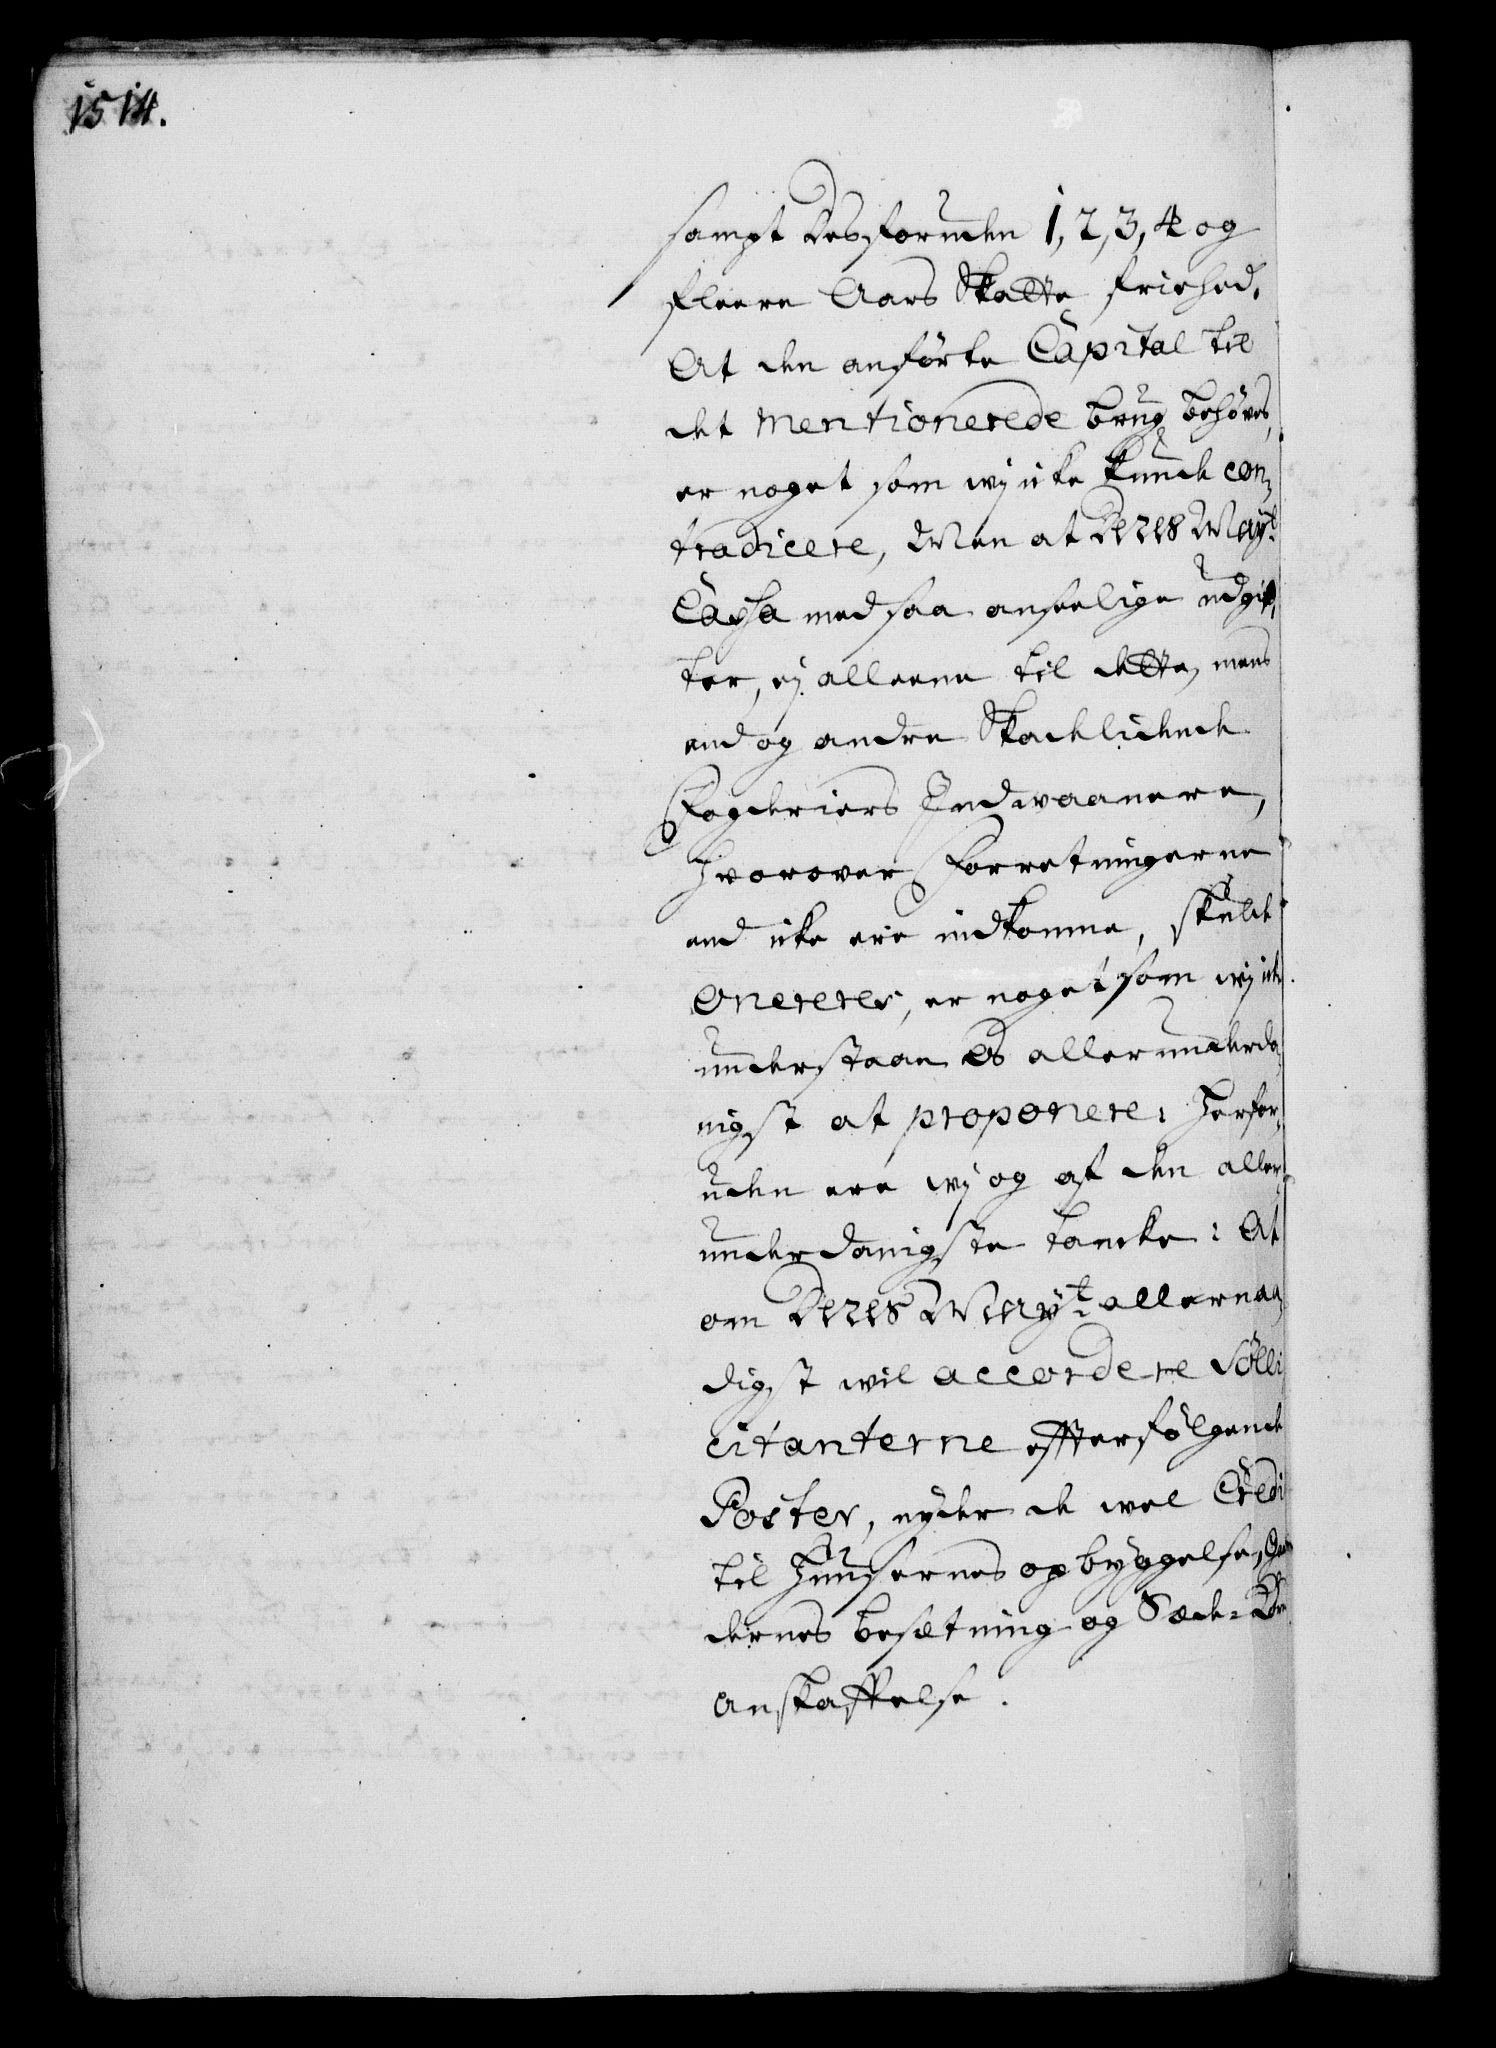 1514.
sampt desforuden 1, 2, 3, 4 og
fleere Aars Skatte friehed.
At den anförte Capital til
det mentionerede brug behöves,
er noget som wj icke kunde con„
tradicere, Men at Deres May:t
Cassa med saa anseelige udgif„
ter, ej alleene til dette, mens
end og andre Skadelidende
Fogderiers Indwaanere,
hvorover Forretningerne
end icke ere indkomne, skulde
onereres, er noget som wj icke
understaae Os allerunderda„
nigst at proponere: Herfor„
uden ere wj og af den aller„
underdanigste tancke: At
om Deres May:t allernaa„
digst wil accordere Solli
citanterne efterfölgende
Poster, nyder de wel Credi
til Huusernes opbyggelse,
dernes besætning og Sæde-
Anskaffelse.